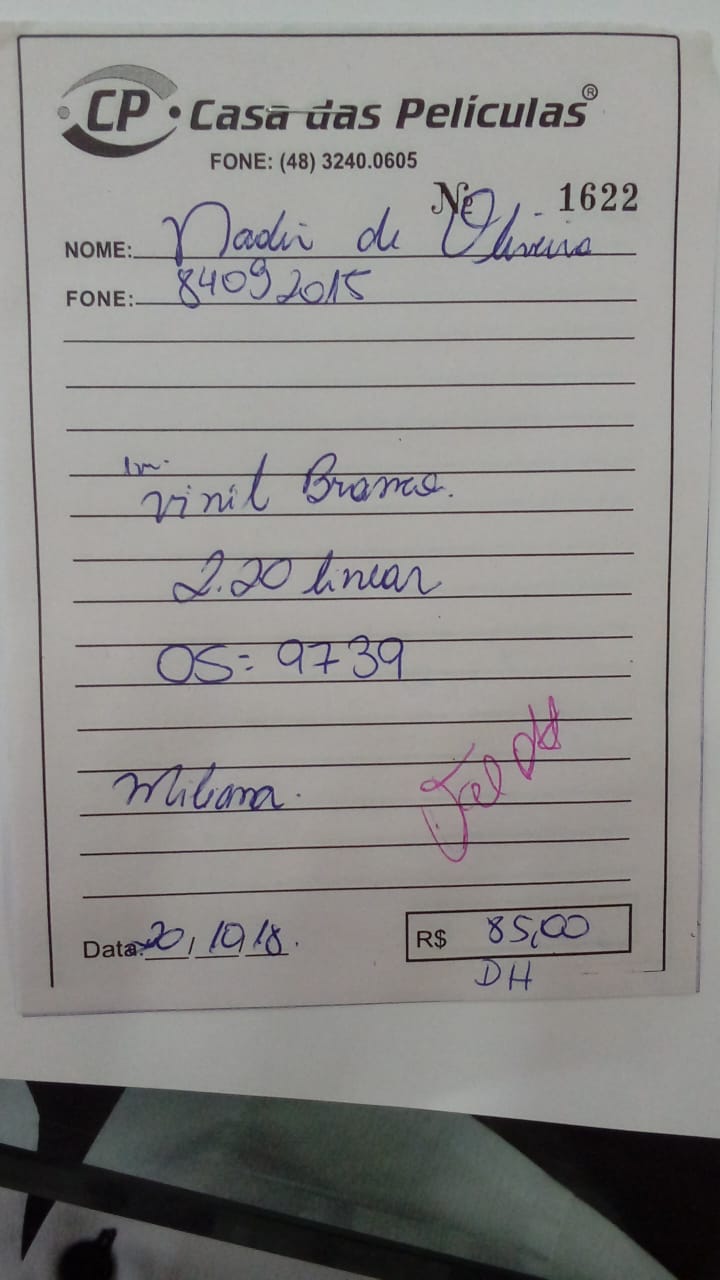 CP • Casa das Películas ®
FONE: (48) 3240.0605
Nº 1622
NOME: Nadir de Oliveira
FONE: 84092015
1m.
Vinil Branco.
2.20 linear
OS= 9739
Data: 20/10/18.
R$ 85,00
DH